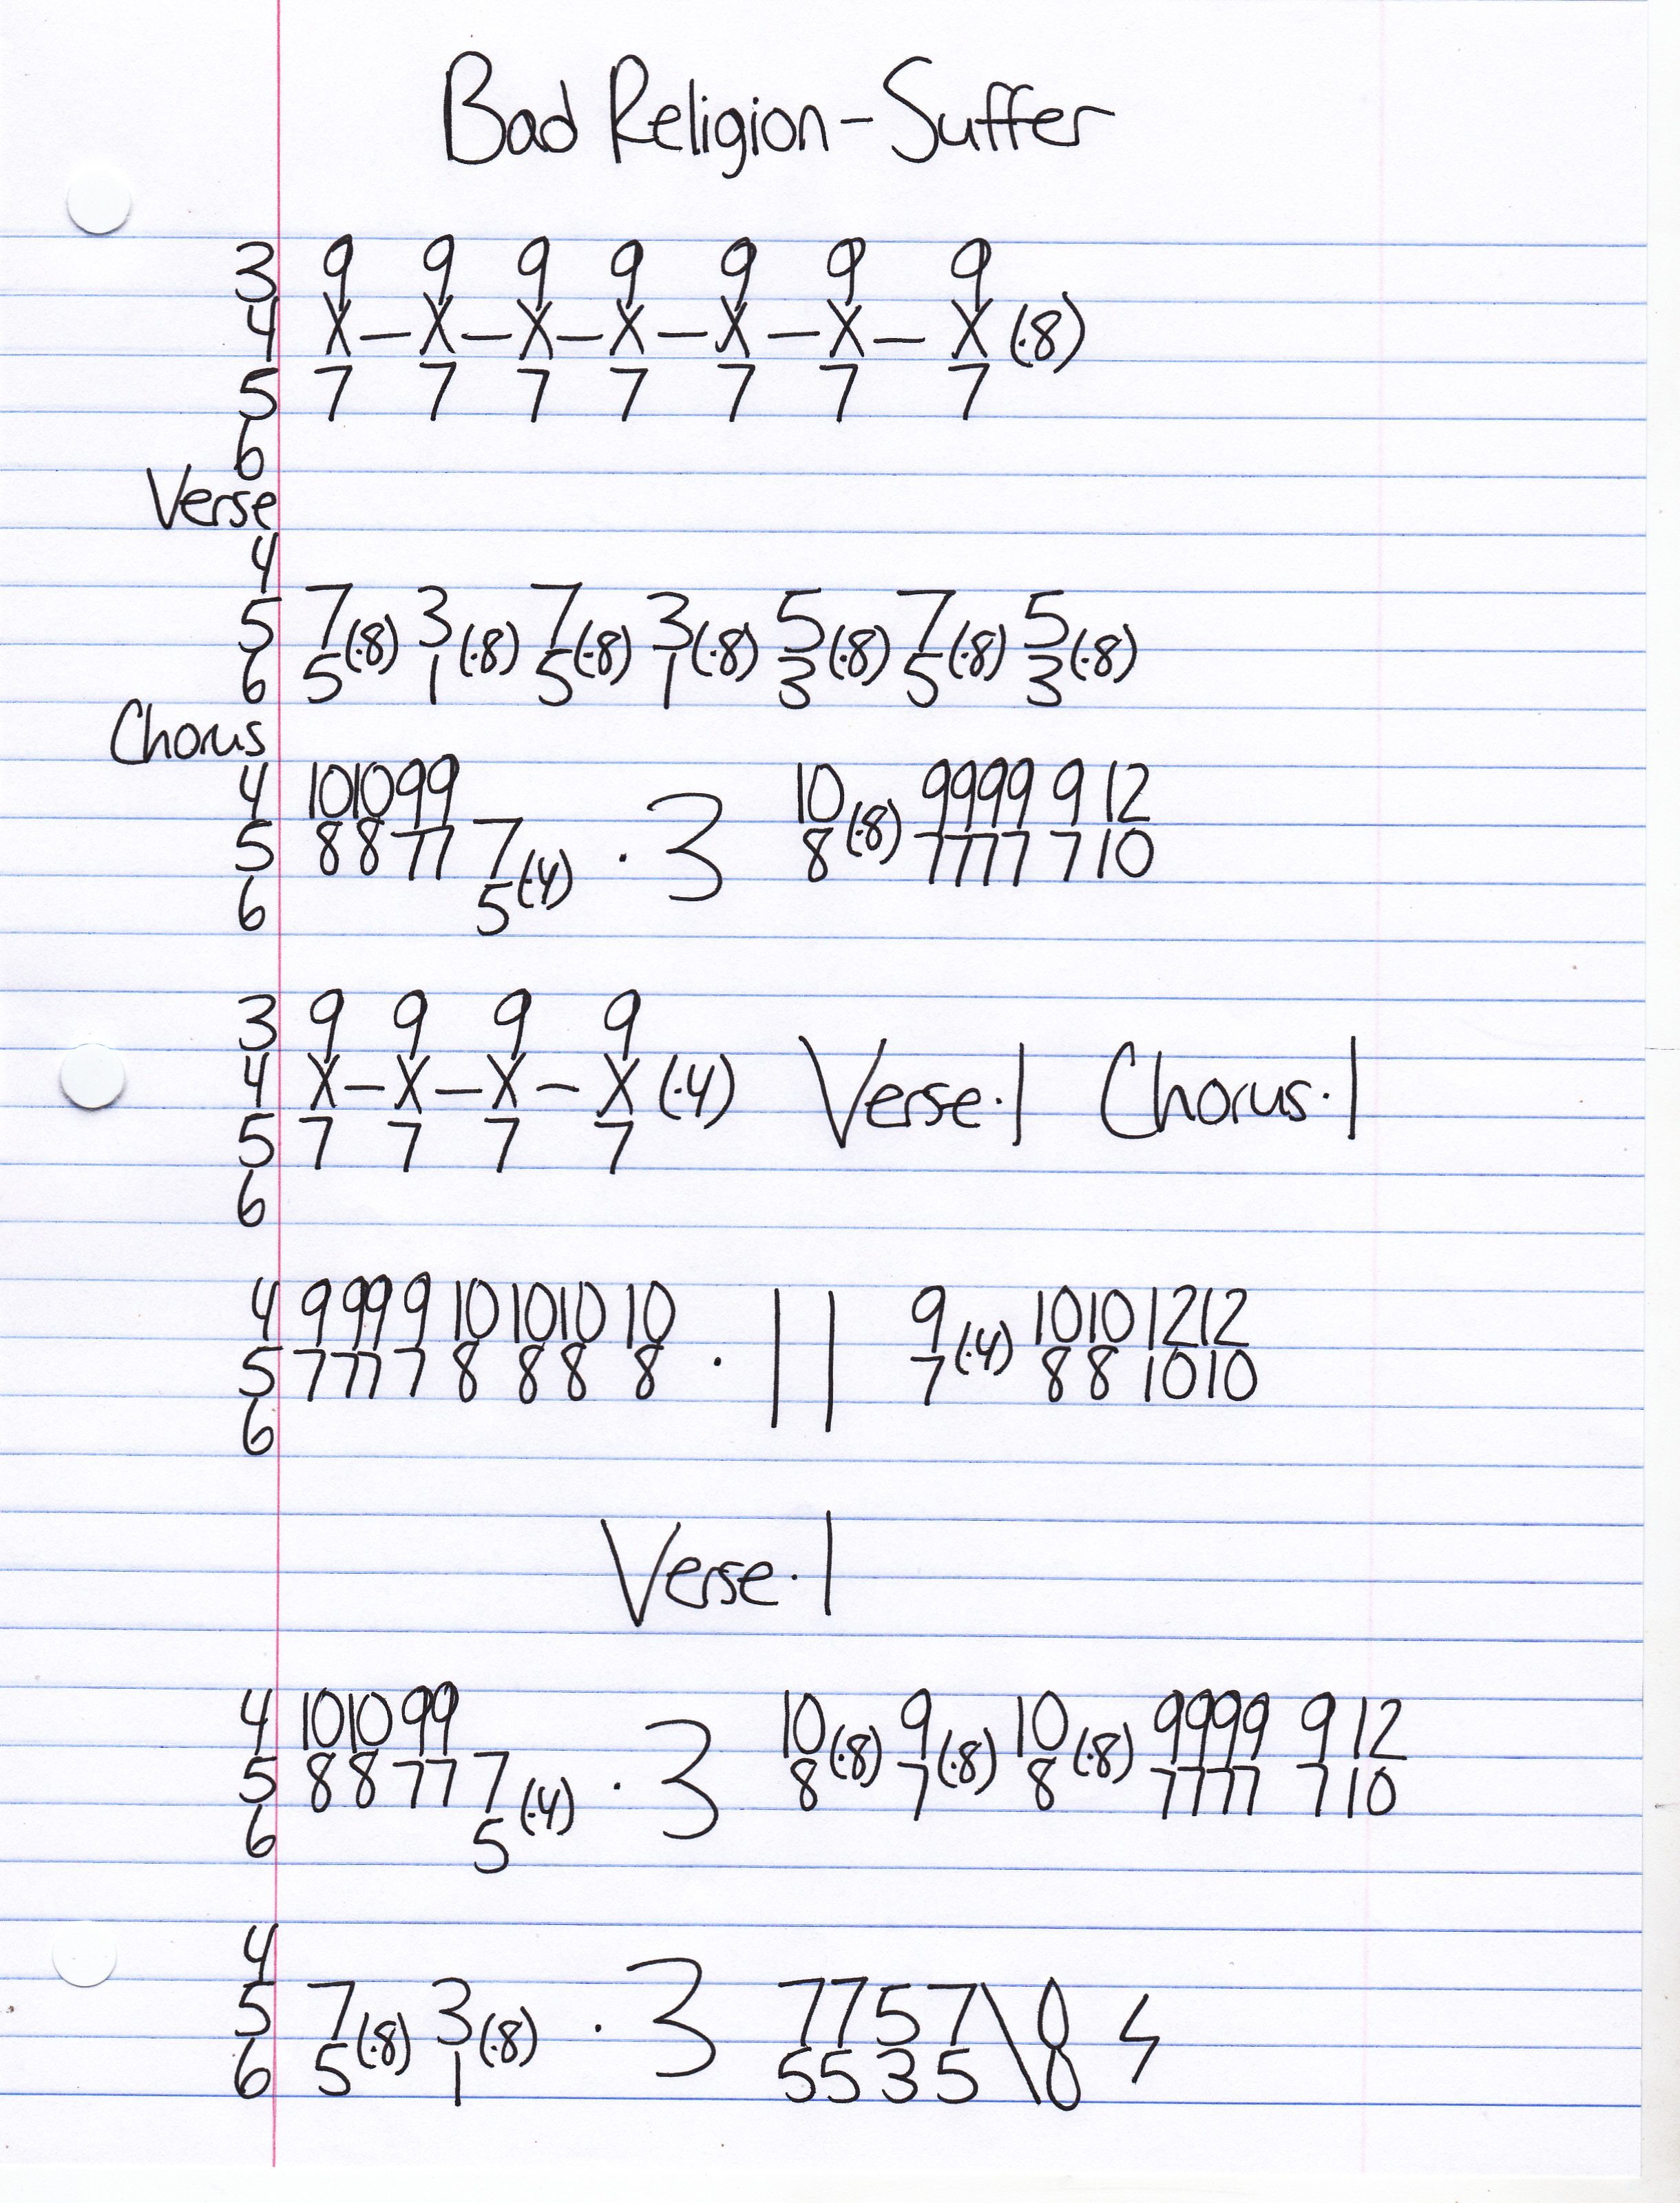 Bad Religion - Suffer
3 9 9 9 9 9 9 9
4 X-X-X-X-X-X-X (·8)
5 7 7 7 7 7 7 7
6
Verse
4
5 7(·8) 3(·8) 7(·8) 3(·8) 5(·8) 7(·8) 5(·8)
6 5 1 5 1 3 5 3
Chorus
4 10 10 9 9 10 9 9 9 9 9 12
5 8 8 7 7 7(·4) · 3 8(·8) 7 7 7 7 7 10
6 5
3 9 9 9 9
4 X-X-X-X (·4) Verse·1 Chorus·1
5 7 7 7 7
6
4 9 9 9 9 10 10 10 10 9 10 10 12 12
5 7 7 7 7 8 8 8 8 · 11 7(·4) 8 8 10 10
6
Verse·1
4 10 10 9 9 10(·8) 9(·8) 10(·8) 9 9 9 9 9 12
5 8 8 7 7 7(·4) · 3 8 7 8 7 7 7 7 7 10
6 5
4
5 7(·8) 3(·8) · 3 7 7 5 7 \ 0
6 5 1 5 5 3 5 0